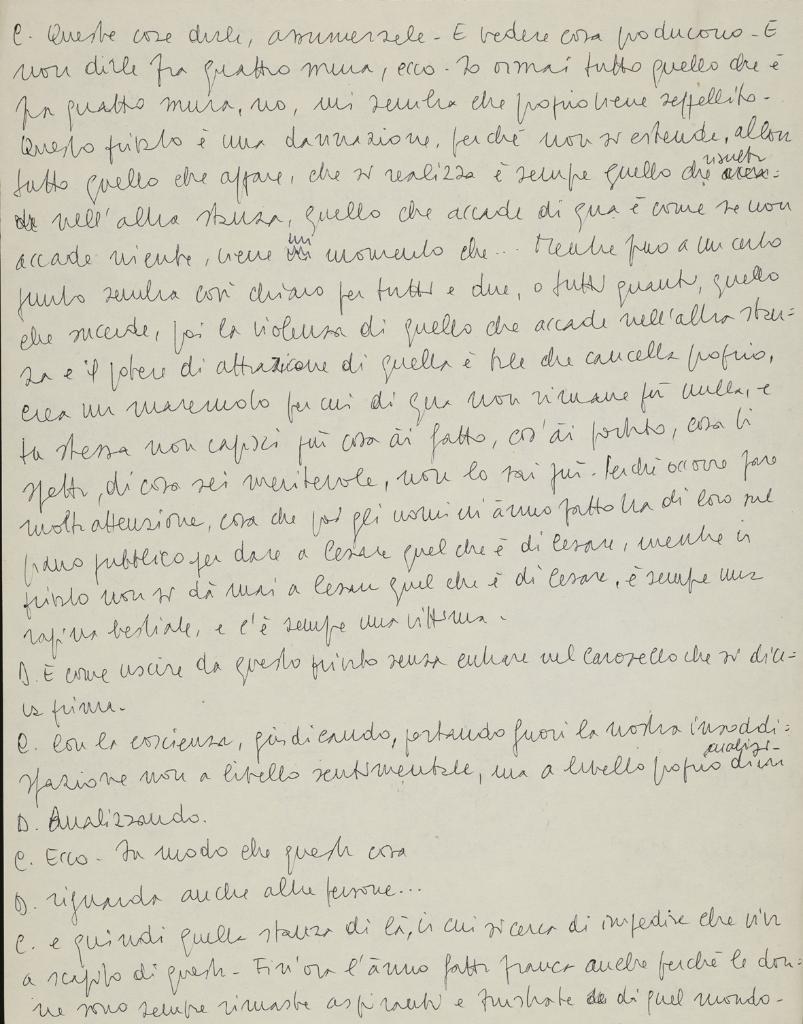 C. Queste cose dirle, assumersele - E vedere cosa producono - E
non dirle fra quattro mura, ecco - Io ormai tutto quello che è
fra quattro mura, no, mi sembra che proprio viene seppellito -
Questo privato è una dannazione, perché non si estende, allora
tutto quello che appare, che si realizza è sempre quello che risulta
nell'altra stanza, quello che accade di qua è come se non
accade niente, viene un momento che... Mentre fino a un certo
punto sembra così chiaro per tutti e due, o tutti quanti, quello
che succede, poi la violenza di quello che accade nell'altra stan-
za e il potere di attrazione di quella è tale che cancella proprio,
crea un maremoto per cui di qua non rimane più nulla, e
tu stessa non capisci più cosa ài fatto, cos'ài portato, cosa ti
spetti, di cosa sei meritevole, non lo sai più - Perché occorre fare
molta attenzione, cosa che poi gli uomini ànno fatto tra di loro sul
piano pubblico per dare a Cesare quel che è di Cesare, mentre in
privato non si dà mai a Cesare quel che è di Cesare, è sempre una
rapina bestiale, e c'è sempre una vittima.
D. E come uscire da questo privato senza entrare nel carosello che si dice-
va prima.
C. Con la coscienza, giudicando, portando fuori la nostra insoddi=
sfazione non a livello sentimentale, ma a livello proprio di analisi-
D. Analizzando.
C. Ecco - In modo che questa cosa
D. riguarda anche altre persone...
C. e quindi quella stanza di là, in cui si cerca di impedire che viva
a scapito di questa - Fin'ora l'ànno fatta franca anche perché le don=
ne sono sempre rimaste aspiranti e frustrate di quel mondo -